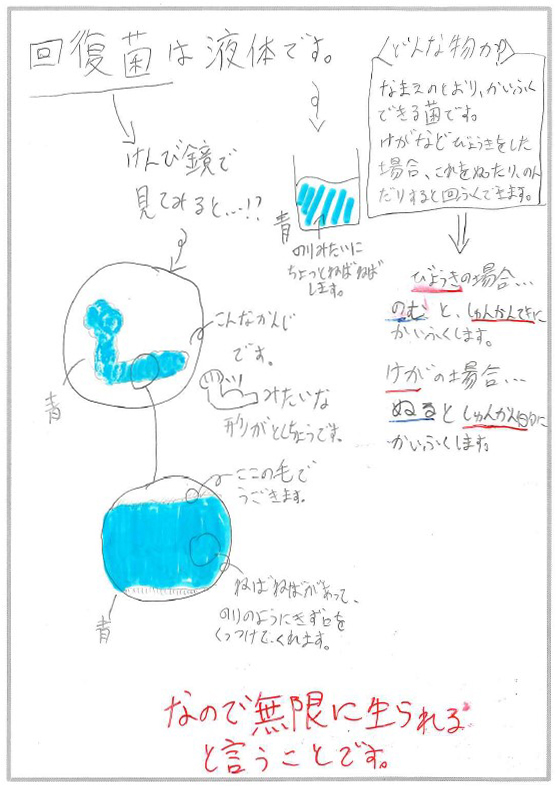 回復菌は液体です。
どんな物か?
なまえのとおり、かいふく
できる菌です。
けがなどびょうきをした
場合、これをぬったり、のん
だりすると回ふくできます。
けんび鏡で
見てみると…!?
青
のりみたいに
ちょっとねばねば
します。
びょうきの場合…
のむと、しゅんかんてきに
かいふくします。
けがの場合…
ぬるとしゅんかん的に
かいふくします
こんなかんじ
です。
みたいな
形がとくちょうです。
青
ここの毛で
うごきます。
ねばねばがあって、
のりのようにきず口を
くっつけてくれます。
青
なので無限に生られる
と言うことです。